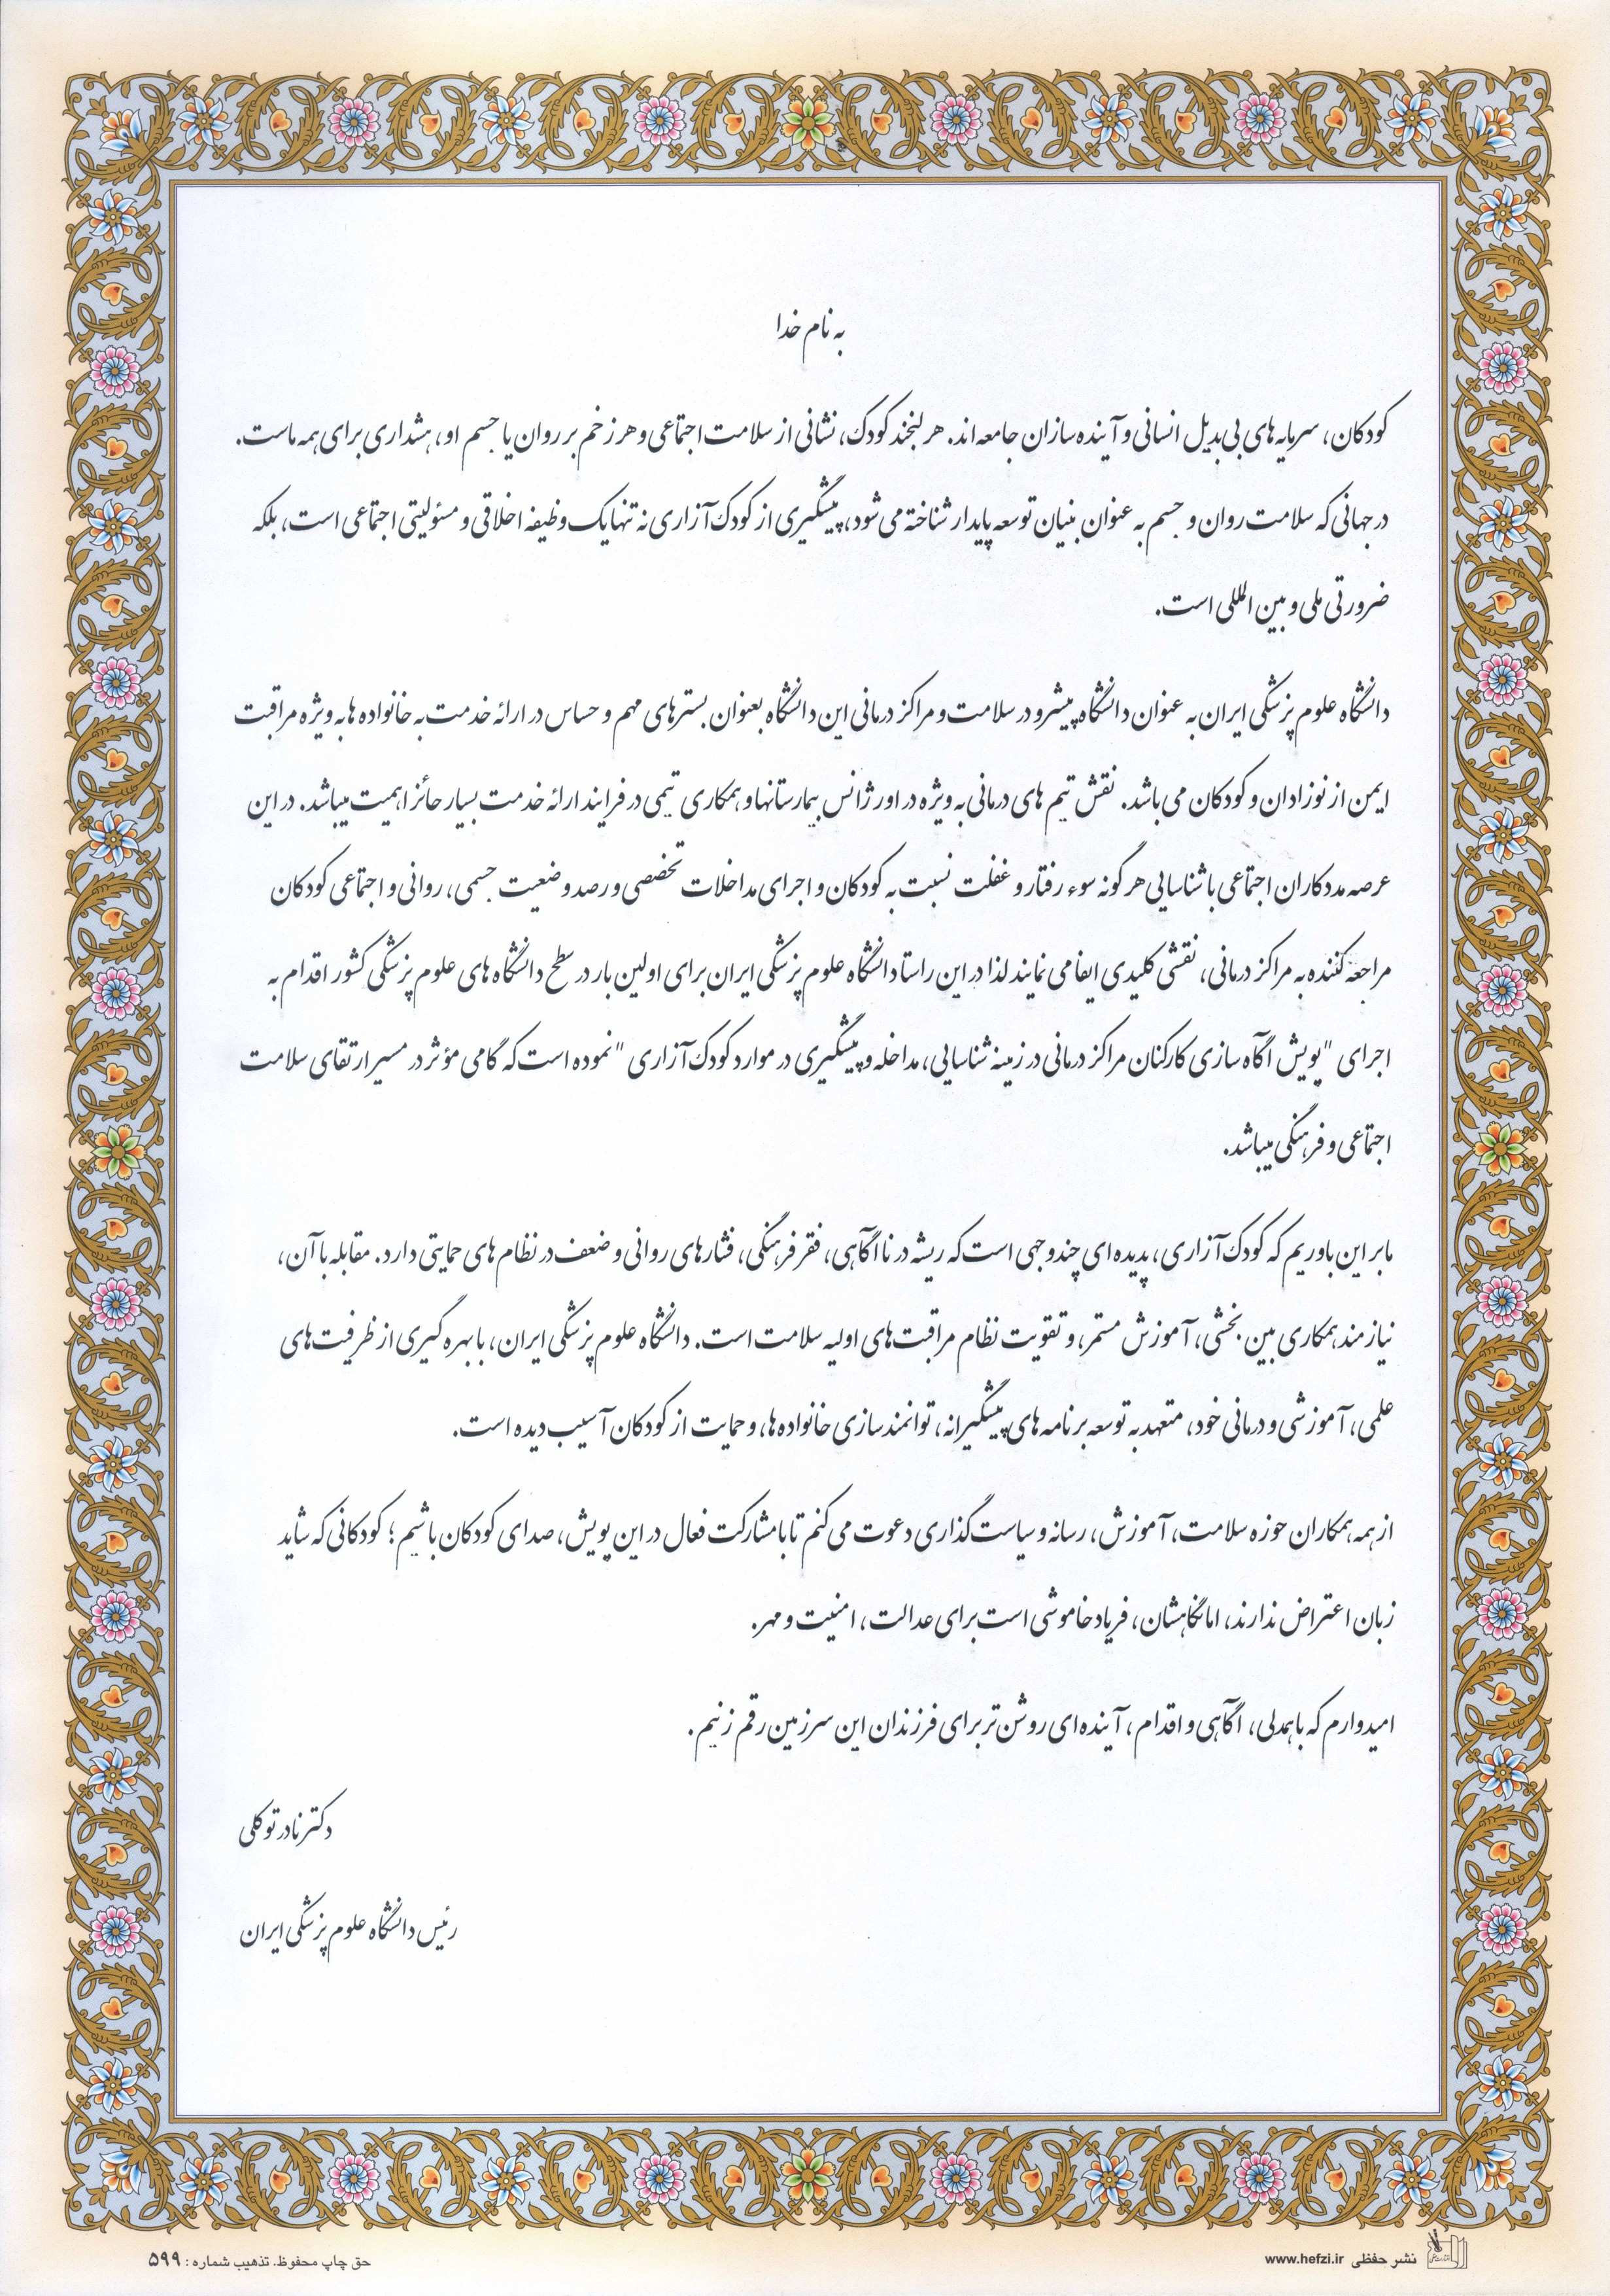 به نام خدا
کودکان، سرمایه‌های بی‌بدیل انسانی و آینده‌سازان جامعه‌اند. هر لبخند کودک، نشانی از سلامت اجتماعی و هر زخم بر روان یا جسم او، هشداری برای همه ماست.
در جهانی که سلامت روان و جسم به عنوان بنیان توسعه پایدار شناخته می‌شود، پیشگیری از کودک‌آزاری نه تنها یک وظیفه اخلاقی و مسئولیتی اجتماعی است، بلکه
ضرورتی ملی و بین المللی است.
دانشگاه علوم پزشکی ایران به عنوان دانشگاه پیشرو در سلامت و مراکز درمانی این دانشگاه بعنوان بسترهای مهم و حساس در ارائه خدمت به خانواده ها به ویژه مراقبت
ایمن از نوزادان و کودکان می باشد. نقش تیم های درمانی به ویژه در اورژانس بیمارستانها و همکاری تیمی در فرایند ارائه خدمت بسیار حائز اهمیت میباشد. در این
عرصه مددکاران اجتماعی با شناسایی هر گونه سوء رفتار و غفلت نسبت به کودکان و اجرای مداخلات تخصصی و رصد وضعیت جسمی، روانی و اجتماعی کودکان
مراجعه کننده به مراکز درمانی، نقشی کلیدی ایفا می نمایند لذا در این راستا دانشگاه علوم پزشکی ایران برای اولین بار در سطح دانشگاه های علوم پزشکی کشور اقدام به
اجرای "پویش آگاه سازی کارکنان مراکز درمانی در زمینه شناسایی، مداخله و پیشگیری در موارد کودک آزاری" نموده است که گامی مؤثر در مسیر ارتقای سلامت
اجتماعی و فرهنگی میباشد.
ما بر این باوریم که کودک‌آزاری، پدیده‌ای چندوجهی است که ریشه در ناآگاهی، فقر فرهنگی، فشارهای روانی و ضعف در نظام های حمایتی دارد. مقابله با آن،
نیازمند همکاری بین بخشی، آموزش مستمر، و تقویت نظام مراقبت‌های اولیه سلامت است. دانشگاه علوم پزشکی ایران، با بهره گیری از ظرفیت‌های
علمی، آموزشی و درمانی خود، متعهد به توسعه برنامه های پیشگیرانه، توانمندسازی خانواده ها، و حمایت از کودکان آسیب دیده است.
از همه همکاران حوزه سلامت، آموزش، رسانه و سیاست گذاری دعوت می کنم تا با مشارکت فعال در این پویش، صدای کودکان باشیم؛ کودکانی که شاید
زبان اعتراض ندارند، اما نگاهشان، فریاد خاموشی است برای عدالت، امنیت و مهر.
امیدوارم که با همدلی، آگاهی و اقدام، آینده ای روشن تر برای فرزندان این سرزمین رقم زنیم.
دکتر نادر توکلی
رئیس دانشگاه علوم پزشکی ایران
نشر حفظی www.hefzi.ir
حق چاپ محفوظ. تذهیب شماره: ۵۹۹